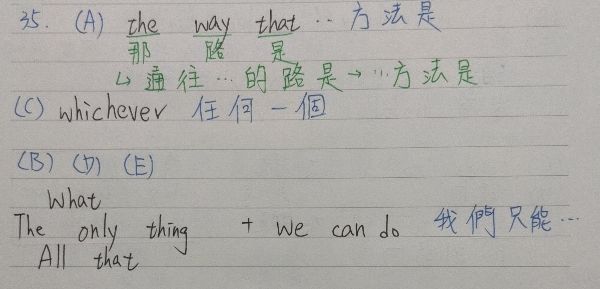 35. (A) the way that … 方法是
那 路 是
↳ 通往…的路是→…方法是
(C) whichever 任何一個
(B) (D) (E)
What
The only thing + we can do 我們只能…
All that